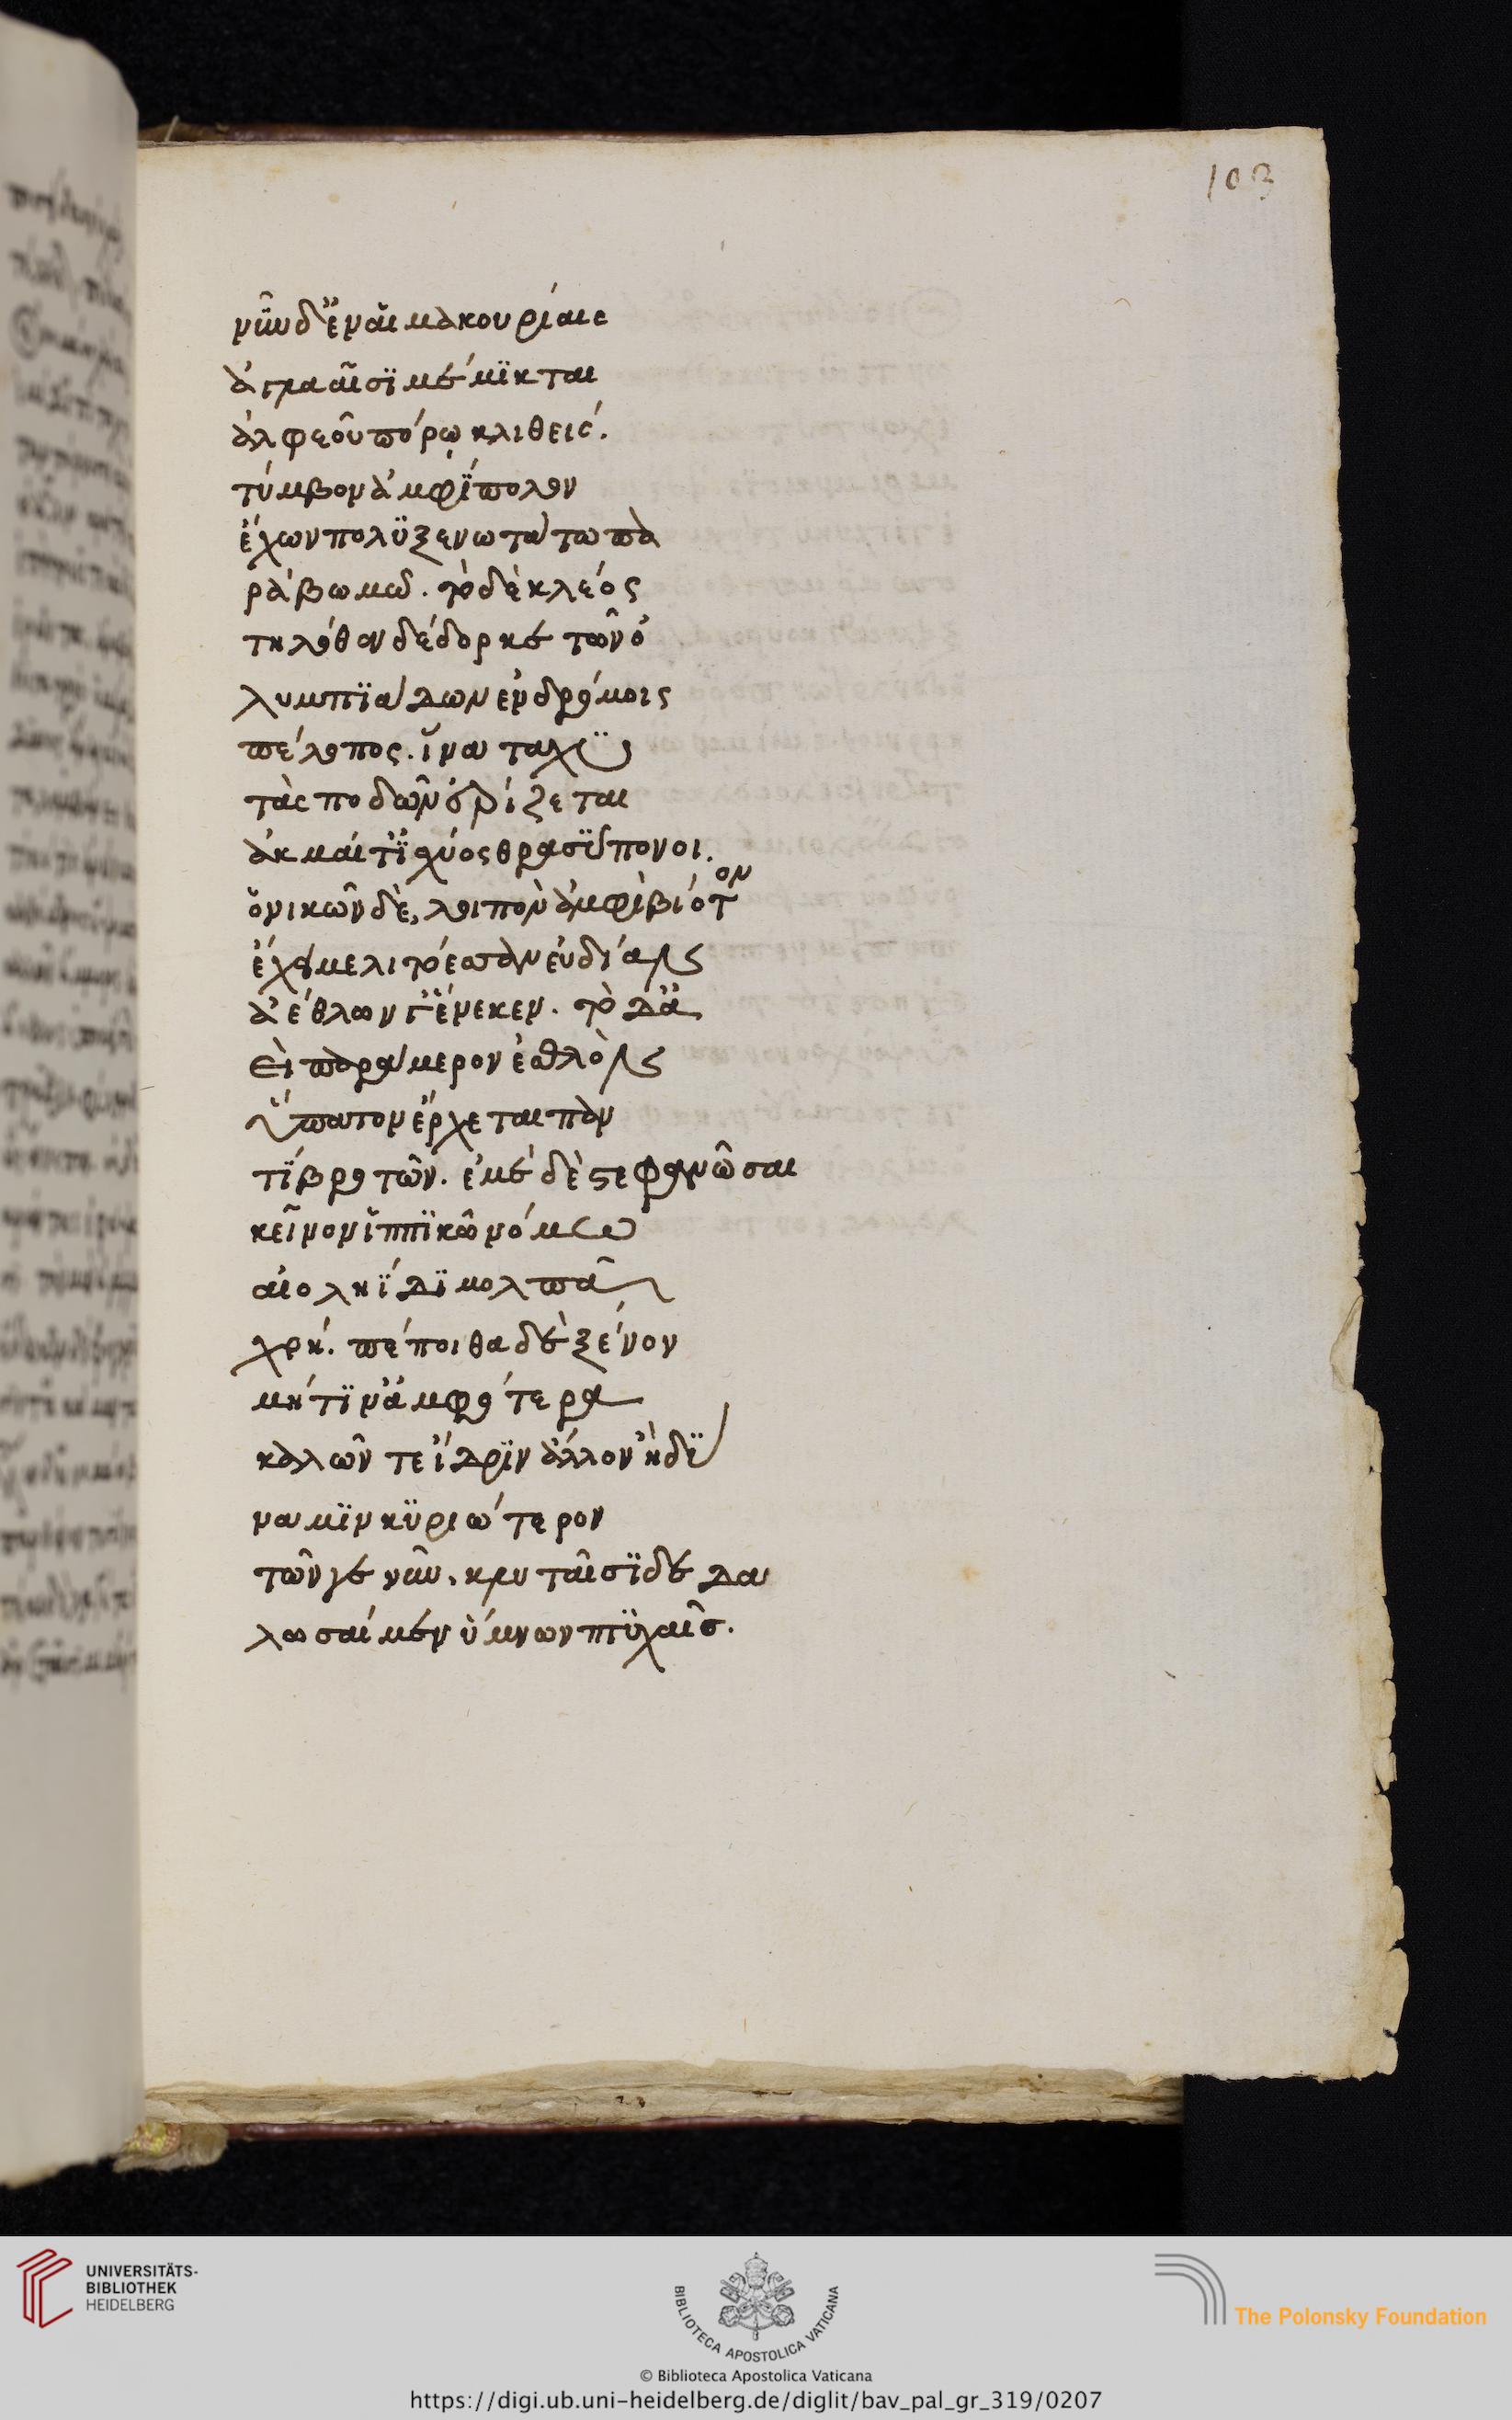 103
νῦν δ' ἐν αἱμακουρίαις
ἀγλααῖσϊ μέμϊκται
ἀλφεοῦ πόρῳ κλιθείς.
τύμβον ἀμφίπολον
ἔχων πολϋξενωτάτω πα
ρὰ βωμῶ. τὸ δὲ κλέος
τηλόθεν δέδορκε τῶν ὀ
λυμπϊάδων ἐν δρόμοις
πέλοπος. ἵνα ταχϋ
τὰς ποδῶν ἐρίζεται
ἀκμαί τ' ἰσχύος θρασϋπονοι.
ὁ νικῶν δὲ, λοιπὸν ἀμφὶ βίοτον
ἔχει μελιτόεσσαν εὐδίαν
ἀέθλων γ' ἕνεκεν. τὸ δ' ἀ
εὶ παράμερον ἐσθλὸν
ὕπατον ἔρχεται παν
τϊ βροτῶν. ἐμὲ δὲ στεφανῶσαι
κεῖνον ἱππϊκῶ νόμω
αἰοληΐδϊ μολπᾶ
χρή. πέποιθα δὲ ξένον
μήτϊν' ἀμφότερα
καλῶν τε ἴδρϊν ἄλλον ἢ δϋ
ναμϊν κϋριώτερον
τῶν γε νῦν, κλυταῖσϊ δε δα
λωσαίμεν ὕμνων πτϋχαῖς.
UNIVERSITÄTS-
BIBLIOTHEK
HEIDELBERG
BIBLIOTECA APOSTOLICA VATICANA
The Polonsky Foundation
© Biblioteca Apostolica Vaticana
https://digi.ub.uni-heidelberg.de/diglit/bav_pal_gr_319/0207